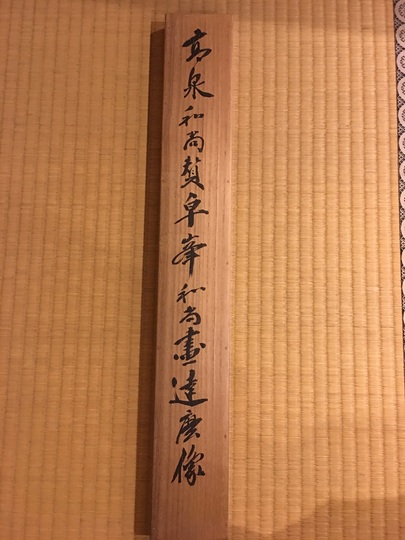 高泉和尚賛卓峯和尚畫達磨像